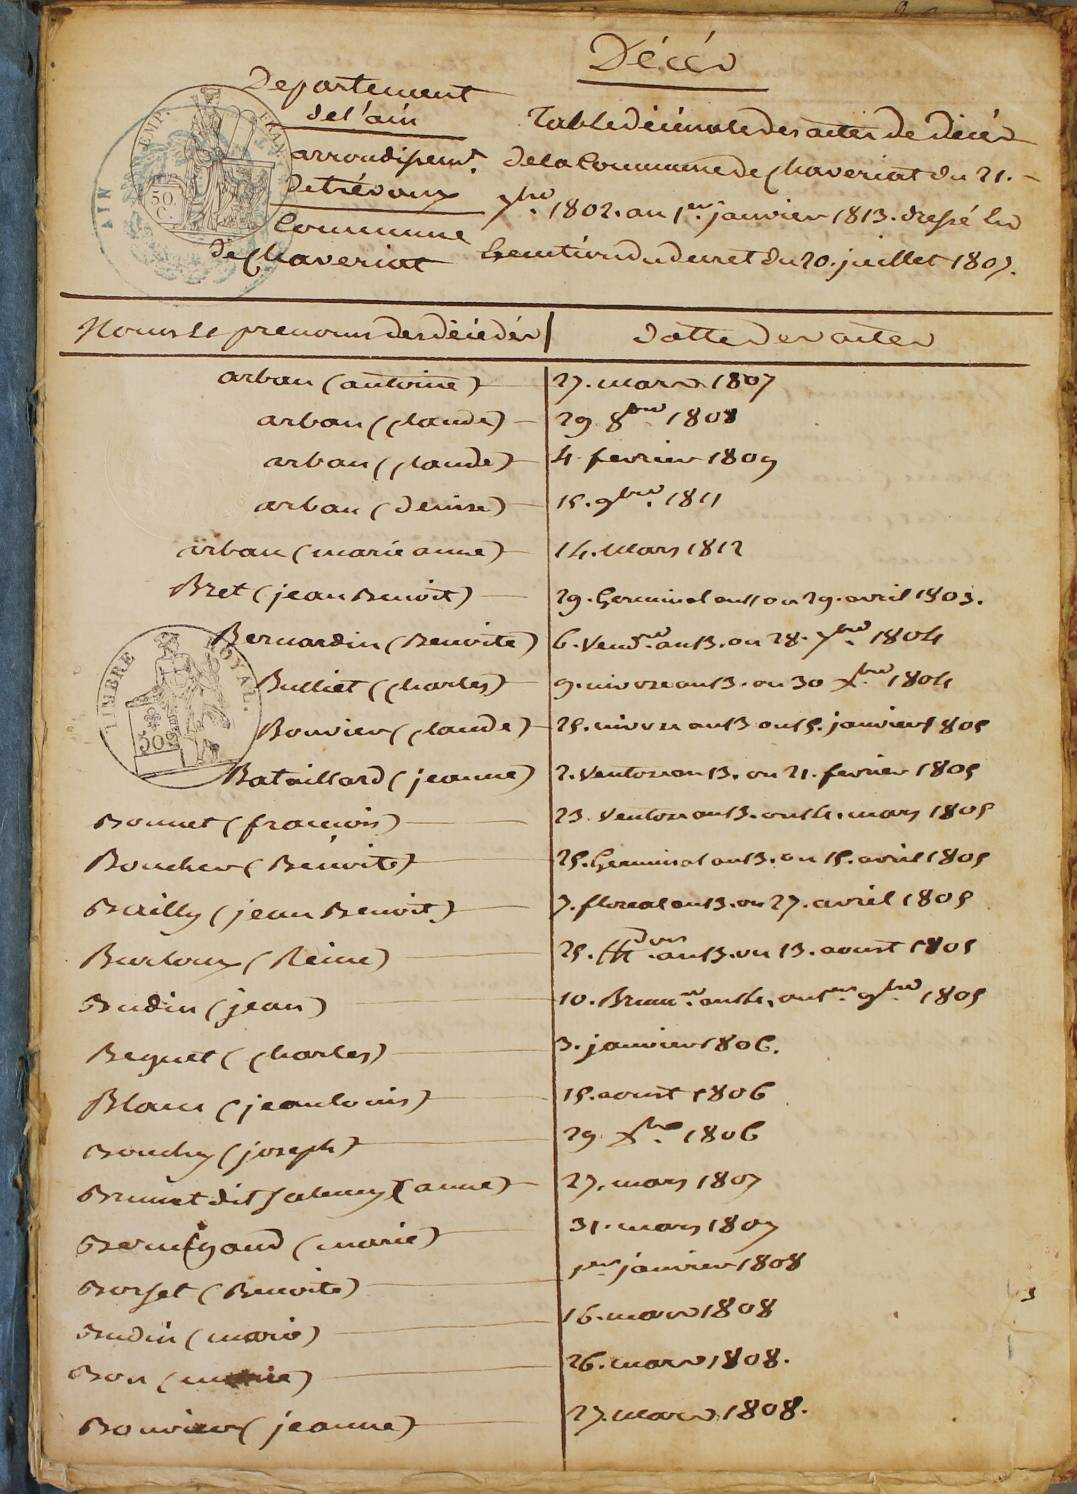 Décès
Departement
de l'ain
arrondissemt.
de trévoux
Commune
de Chaveriat
Table décénale des actes de décès
de la Commune de Chaveriat du 21.
7bre. 1802. au 1er. janvier 1813. dressé En
Execution du decret du 20. juillet 1807.
EMP. FRAN
AIN
50.
C.
Noms Et prenoms des décédés
datte des actes
arban (antoine) 27. mars 1807
arban (Claude) 29 8bre. 1808
arban (Claude) 4 fevrier 1809
arban (denise) 15. 9bre. 1811
arban (marie anne) 14. Mars 1812
Bret (jean Benoit) 29. Germinal an 11 ou 29. avril 1803.
Bernardin (Benoite) 6. Vend.re an 13. ou 28. 7bre. 1804
Bulliet (Charles) 9. nivose an 13. ou 30 Xbre 1804
Bouvier (Claude) 25. nivose an 13 ou 15. janvier 1805
Bataillard (jeanne) 2. Ventose an 13. ou 21. fevrier 1805
TIMBRE ROYAL.
50c
Bonnet (francois) 23. Ventose an 13. ou 14. mars 1805
Boucher (Benoite) 25. Germinal an 13. ou 15. avril 1805
Bailly (jean Benoit.) 7. floreal an 13. ou 27. avril 1805
Burtoux (Reine) 25. an 13. ou 13. aoust 1805
Budin (jean) 10. Brum.re an 14, ou 1er. 9bre 1805
Beguet (Charles) 3. janvier 1806.
Blanc (jean louis) 15. aoust 1806
Bouchy (joseph) 29 Xbre. 1806
Brunet dit (anne) 27. mars 1807
(marie) 31. mars 1807
Borset (Benoite) 1er janvier 1808
Budin (marie) 16. mars 1808
Bon (marie) 26. mars 1808.
Bouvier (jeanne) 27. mars 1808.